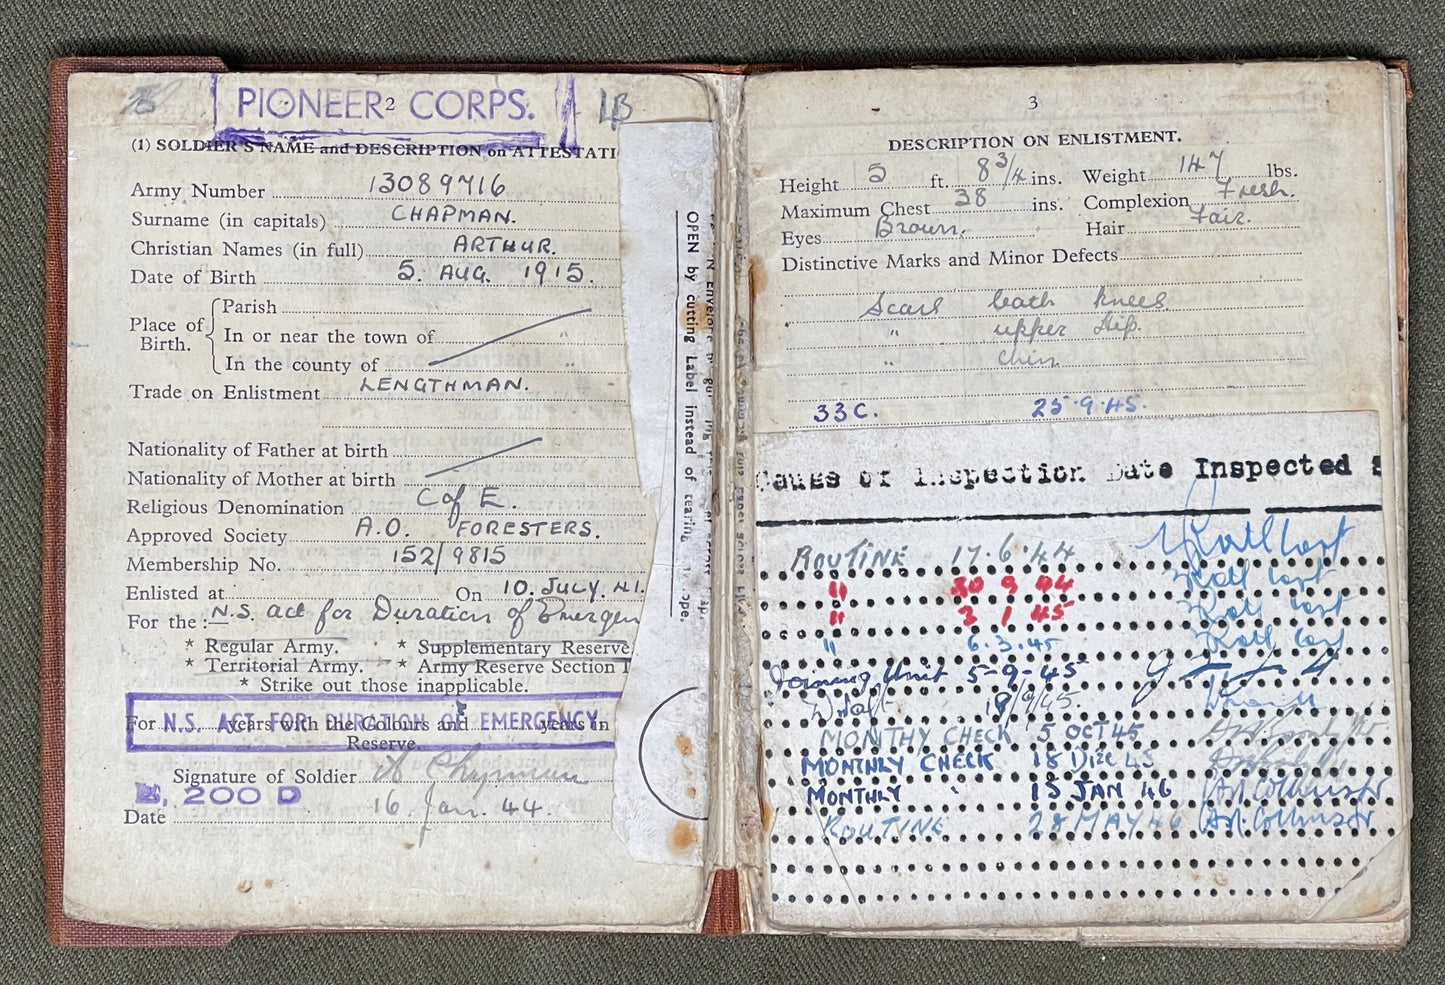 PIONEER CORPS. LB
2
(1) SOLDIER'S NAME and DESCRIPTION on ATTESTATI
Army Number 13089716
Surname (in capitals) CHAPMAN.
Christian Names (in full) ARTHUR.
Date of Birth 5. AUG. 1915.
Place of Birth.
Parish
In or near the town of "
In the county of "
Trade on Enlistment LENGTHMAN.
Nationality of Father at birth
Nationality of Mother at birth
Religious Denomination C of E.
Approved Society A.O. FORESTERS.
Membership No. 152/9815
Enlisted at On 10. JULY. 41.
For the :- N.S. act for Duration of Emergen
* Regular Army. * Supplementary Reserve.
* Territorial Army. * Army Reserve Section
* Strike out those inapplicable.
For years with the Colours and years in
Reserve.
N.S. ACT FOR DURATION OF EMERGENCY.
Signature of Soldier A Chapman
200 D
Date 16 Jan. 44.
OPEN by cutting Label instead of tearing
3
DESCRIPTION ON ENLISTMENT.
Height 5 ft. 8 3/4 ins. Weight 147 lbs.
Maximum Chest 38 ins. Complexion Fresh.
Eyes Brown. Hair Fair.
Distinctive Marks and Minor Defects
Scars both knees
" upper lip.
" chin
33C. 25.9.45.
Cause of Inspection Date Inspected
ROUTINE 17.6.44
" 30 9 44
" 3 1 45
" 6.3.45
Joining Unit 5-9-45
Draft 18/9/45.
MONTHY CHECK 5 OCT 45
MONTHLY CHECK 18 DEC 45
MONTHLY 15 JAN 46
ROUTINE 28 MAY 46